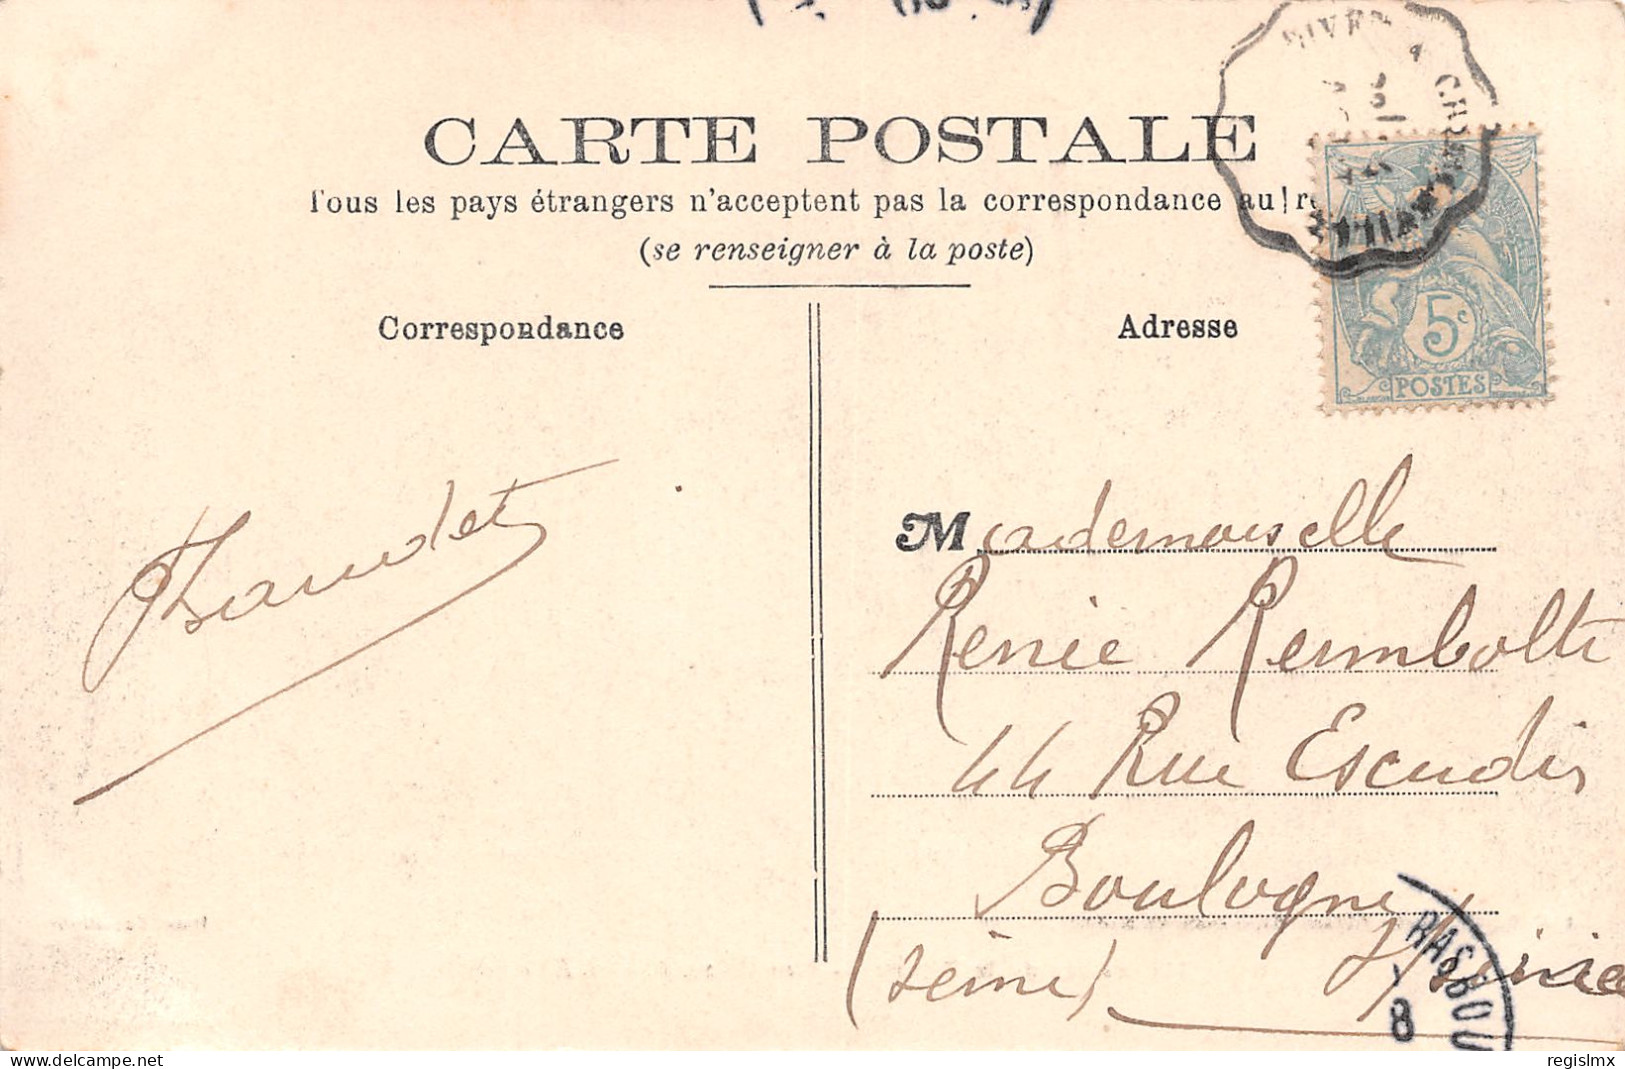 CARTE POSTALE
Tous les pays étrangers n'acceptent pas la correspondance au
(se renseigner à la poste)
Correspondance
Adresse
5c
POSTES
Baudet
Mademoiselle
Renée Rembolte
44 Rue Escudier
Boulogne
s/Seine
(Seine)
RASBOU
8
regislmx